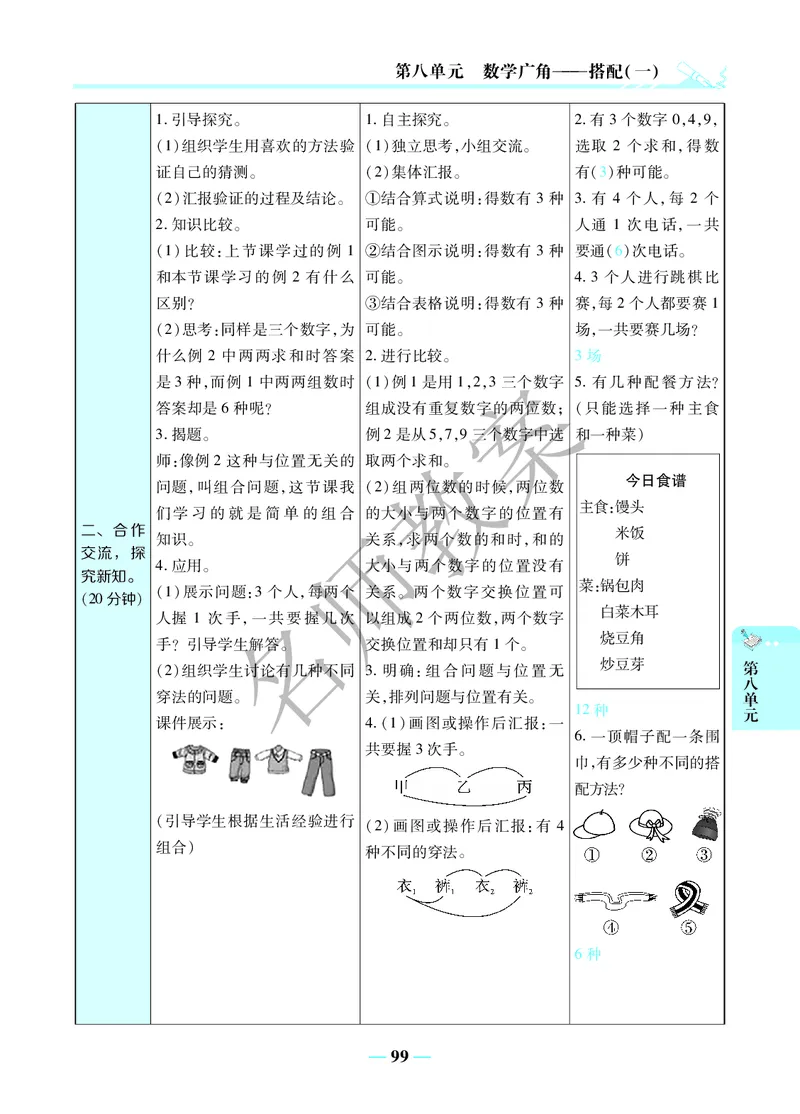 第八单元 数学广角——搭配(一)
二、合作
交流，探
究新知。
(20分钟)
1.引导探究。
(1)组织学生用喜欢的方法验
证自己的猜测。
(2)汇报验证的过程及结论。
2.知识比较。
(1)比较:上节课学过的例1
和本节课学习的例2有什么
区别?
(2)思考:同样是三个数字,为
什么例2中两两求和时答案
是3种,而例1中两两组数时
答案却是6种呢?
3.揭题。
师:像例2这种与位置无关的
问题,叫组合问题,这节课我
们学习的就是简单的组合
知识。
4.应用。
(1)展示问题:3个人,每两个
人握1次手,一共要握几次
手? 引导学生解答。
(2)组织学生讨论有几种不同
穿法的问题。
课件展示:
(引导学生根据生活经验进行
组合)
1.自主探究。
(1)独立思考,小组交流。
(2)集体汇报。
①结合算式说明:得数有3种
可能。
②结合图示说明:得数有3种
可能。
③结合表格说明:得数有3种
可能。
2.进行比较。
(1)例1是用1,2,3三个数字
组成没有重复数字的两位数;
例2是从5,7,9三个数字中选
取两个求和。
(2)组两位数的时候,两位数
的大小与两个数字的位置有
关系,求两个数的和时,和的
大小与两个数字的位置没有
关系。两个数字交换位置可
以组成2个两位数,两个数字
交换位置和却只有1个。
3.明确:组合问题与位置无
关,排列问题与位置有关。
4.(1)画图或操作后汇报:一
共要握3次手。
甲 乙 丙
(2)画图或操作后汇报:有4
种不同的穿法。
衣1 裤1 衣2 裤2
2.有3个数字0,4,9,
选取2个求和,得数
有(3)种可能。
3.有4个人,每2个
人通1次电话,一共
要通(6)次电话。
4.3个人进行跳棋比
赛,每2个人都要赛1
场,一共要赛几场?
3场
5.有几种配餐方法?
(只能选择一种主食
和一种菜)
今日食谱
主食:馒头
米饭
饼
菜:锅包肉
白菜木耳
烧豆角
炒豆芽
12种
6.一顶帽子配一条围
巾,有多少种不同的搭
配方法?
① ② ③
④ ⑤
6种
第八单元
名师教案
— 99 —